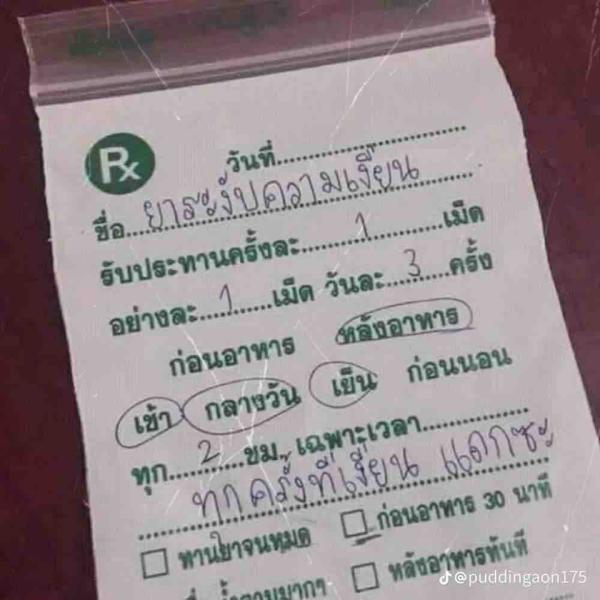 Rx
วันที่
ชื่อ ยาระงับความเงี่ยน
รับประทานครั้งละ 1 เม็ด
อย่างละ 1 เม็ด วันละ 3 ครั้ง
ก่อนอาหาร หลังอาหาร
เช้า กลางวัน เย็น ก่อนนอน
ทุก 2 ชม. เฉพาะเวลา
ทุกครั้งที่เงี่ยน แดกซะ
ทานยาจนหมด ก่อนอาหาร 30 นาที
ดื่มน้ำตามมากๆ หลังอาหารทันที
@puddingaon175